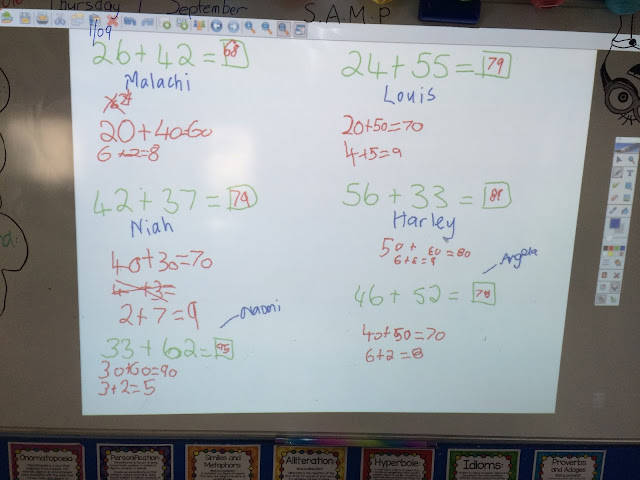 Thursday 1 September S.A.M.P
1/09
26+42=68
Malachi
20+40=60
6+2=8
24+55=79
Louis
20+50=70
4+5=9
42+37=79
Niah
40+30=70
4+3=
2+7=9
56+33=
Harley
50+ 60=80
Angela
46+52=78
40+50=70
6+2=8
Naomi
33+62=95
30+60=90
3+2=5
Onomatopoeia
Personification
Similes and
Metaphors
Alliteration
Hyperbole:
Idioms:
Proverbs
and Adages